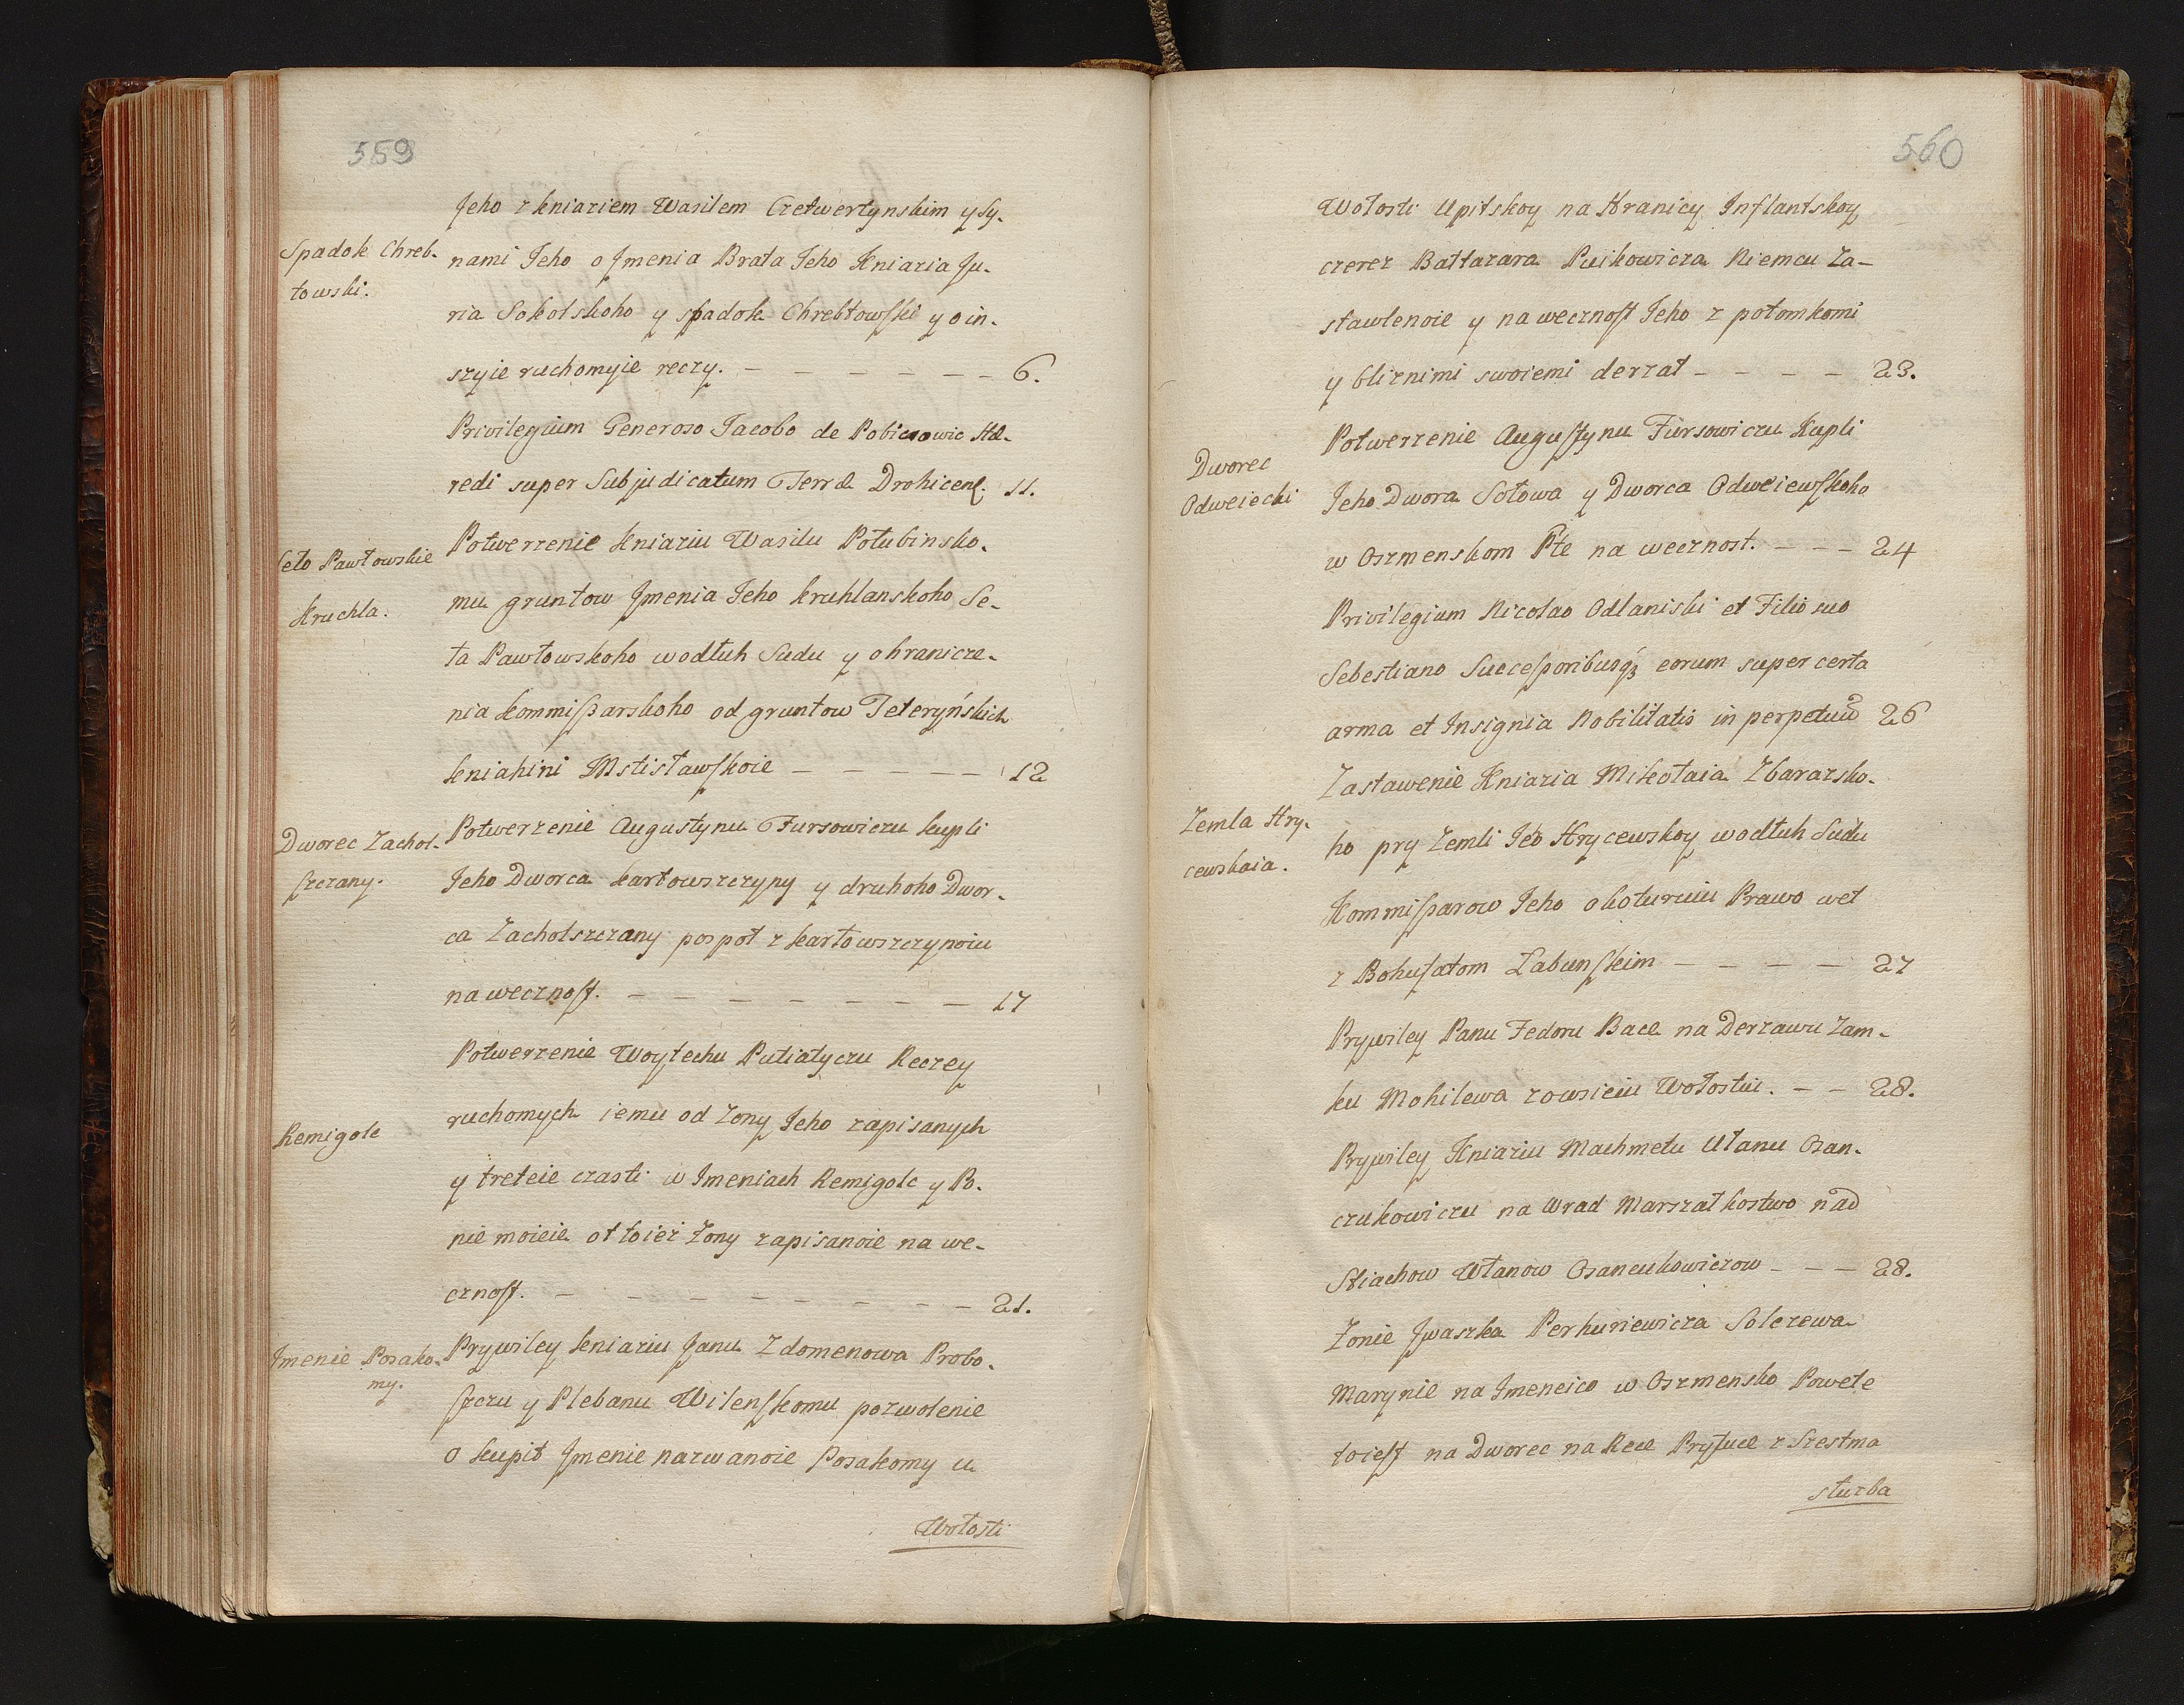 559
Jeho z kniaziem Wasilem Czetwertynskim y Sy-
Spadok Chreb-
towski.
nami Jeho o Jmenia Brata Jeho Kniazia Ju-
ria Sokolskoho y spadok Chrebtowski y o in-
szyie ruchomyie reczy. - - - - - - - 6.
Privilegium Generoso Jacobo de Hæ-
redi super Subjudicatum Terræ Drohicens. 11.
Seło Pawłowskie
Kruchla.
Potwerzenie Kniaziu Wasilu Połubinsko-
mu gruntow Jmenia Jeho Kruhlanskoho Se-
ła Pawłowskoho wodłuh Sudu y ohranicze-
nia Kommissarskoho od gruntow Teteryńskich
Kniahini Mstisławskoie - - - - - 12
Dworec Zachol-
szczany.
Potwerzenie Augustynu Fursowiczu Kupli
Jeho Dworca Karłowszczyny y druhoho Dwor-
ca Zacholszczany pospoł z Karłowszczynoiu
na wecznost. - - - - - - - 17
Potwerzenie Woytechu Putiatyczu Reczey
ruchomych iemu od Zony Jeho zapisanych
Remigole
y treteie czasti w Jmeniach Remigole y Po-
niemoieie ot toież Zony zapisanoie na we-
cznost. - - - - - - - - 21.
Jmenie Posako-
my.
Prywiley Kniaziu Janu Z domenowa Probo-
szczu y Plebanu Wilenskomu pozwolenie
o kupit Jmenie nazwanoie Posakomy u
Wołosti
560
Wołosti Upitskoy na Hranicy Inflantskoy
czerez Bałtazara Puikowicza Niemcu Za-
stawlenoie y na wecznost Jeho z potomkomi
y bliznimi swoiemi derzat - - - - 23.
Dworec
Odweiecki
Potwerzenie Augustynu Fursowiczu Kupli
Jeho Dwora Sołowa y Dworca Odweiewskoho
w Oszmenskom Pte na wecznost. - - - 24
Privilegium Nicolao Odlaniski et Filio suo
Sebestiano Successoribusq3 eorum super certa
arma et Insignia Nobilitatis in perpetuū 26
Zemla Hry-
cewskaia.
Zastawenie Kniazia Mikołaia Zbarazsko-
ho pry Zemli Jeo Hrycewskoy wodłuh Sudu
Kommissarow Jeho o kotoruiu Prawo weł
z Bohusatom Łabunskim - - - - 27
Prywiley Panu Fedoru Bace na Derzawu Zam-
ku Mohilewa zowsieiu Wołostiu. - - 28.
Prywiley Kniaziu Machmetu Ułanu Osan-
czukowiczu na Wrad Marszałkostwo nad
Stiachow Ułanow Osancukowiczow - - - 28.
Żonie Jwaszka Perhuriewicza Solezewa
Marynie na Jmeneico w Oszmensko Powete
toiest na Dworec na Rece Prytuce z Szestma
służba